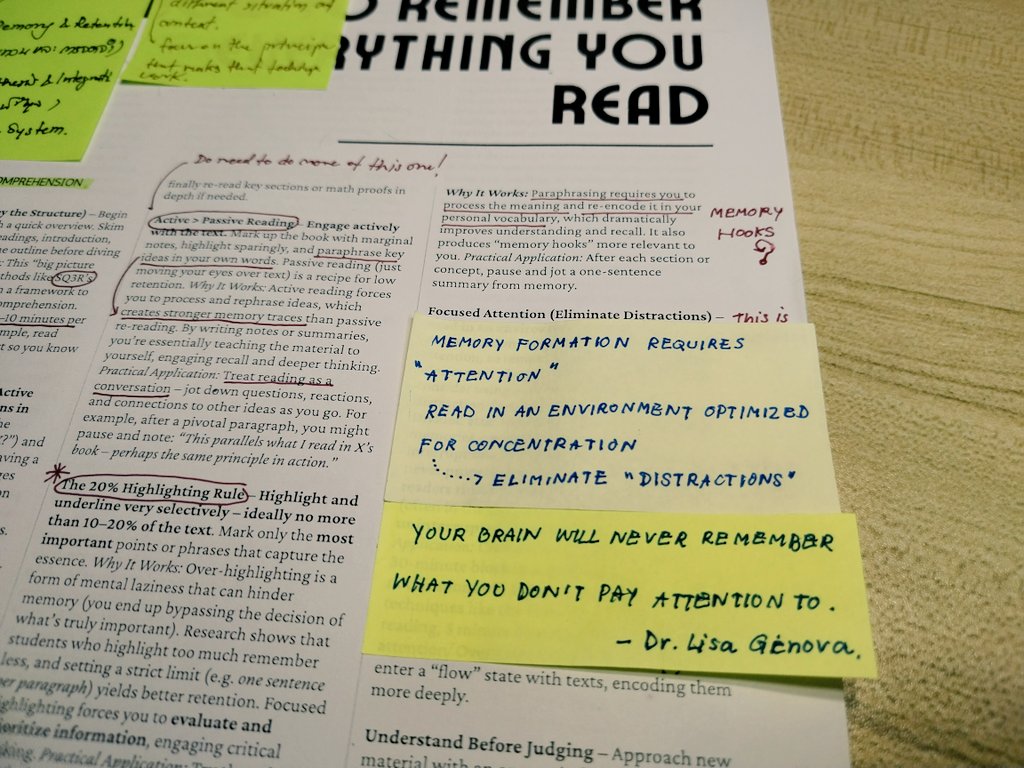 Memory & Retention
& Integrati
System.
different situation or
context.
focus on the principle
that makes that technique
work.
O REMEMBER
RYTHING YOU
READ
Do need to do more of this one!
OMPREHENSION
y the Structure) – Begin
h a quick overview. Skim
eadings, introduction,
e outline before diving
: This “big picture
thods like SQ3R's
n a framework to
omprehension.
–10 minutes per
mple, read
t so you know
Active
ns in
he
?”) and
aving a
ges
on
s.
finally re-read key sections or math proofs in
depth if needed.
Active > Passive Reading – Engage actively
with the text. Mark up the book with marginal
notes, highlight sparingly, and paraphrase key
ideas in your own words. Passive reading (just
moving your eyes over text) is a recipe for low
retention. Why It Works: Active reading forces
you to process and rephrase ideas, which
creates stronger memory traces than passive
re-reading. By writing notes or summaries,
you're essentially teaching the material to
yourself, engaging recall and deeper thinking.
Practical Application: Treat reading as a
conversation – jot down questions, reactions,
and connections to other ideas as you go. For
example, after a pivotal paragraph, you might
pause and note: “This parallels what I read in X's
book – perhaps the same principle in action.”
The 20% Highlighting Rule – Highlight and
underline very selectively – ideally no more
than 10–20% of the text. Mark only the most
important points or phrases that capture the
essence. Why It Works: Over-highlighting is a
form of mental laziness that can hinder
memory (you end up bypassing the decision of
what's truly important). Research shows that
students who highlight too much remember
less, and setting a strict limit (e.g. one sentence
per paragraph) yields better retention. Focused
ghlighting forces you to evaluate and
oritize information, engaging critical
king. Practical Application:
Why It Works: Paraphrasing requires you to
process the meaning and re-encode it in your
personal vocabulary, which dramatically
improves understanding and recall. It also
produces “memory hooks” more relevant to
you. Practical Application: After each section or
concept, pause and jot a one-sentence
summary from memory.
MEMORY
HOOKS
?
Focused Attention (Eliminate Distractions) –
This is
MEMORY FORMATION REQUIRES
"ATTENTION"
READ IN AN ENVIRONMENT OPTIMIZED
FOR CONCENTRATION
ELIMINATE "DISTRACTIONS"
YOUR BRAIN WILL NEVER REMEMBER
WHAT YOU DON'T PAY ATTENTION TO.
– Dr. Lisa Genova.
enter a “flow” state with texts, encoding them
more deeply.
Understand Before Judging – Approach new
material with an